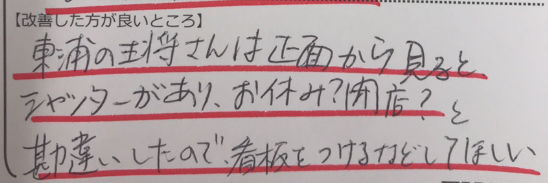 【改善した方が良いところ】
東浦の王将さんは正面から見ると、
シャッターがあり、お休み?閉店?と
勘違いしたので看板をつけるなどしてほしい